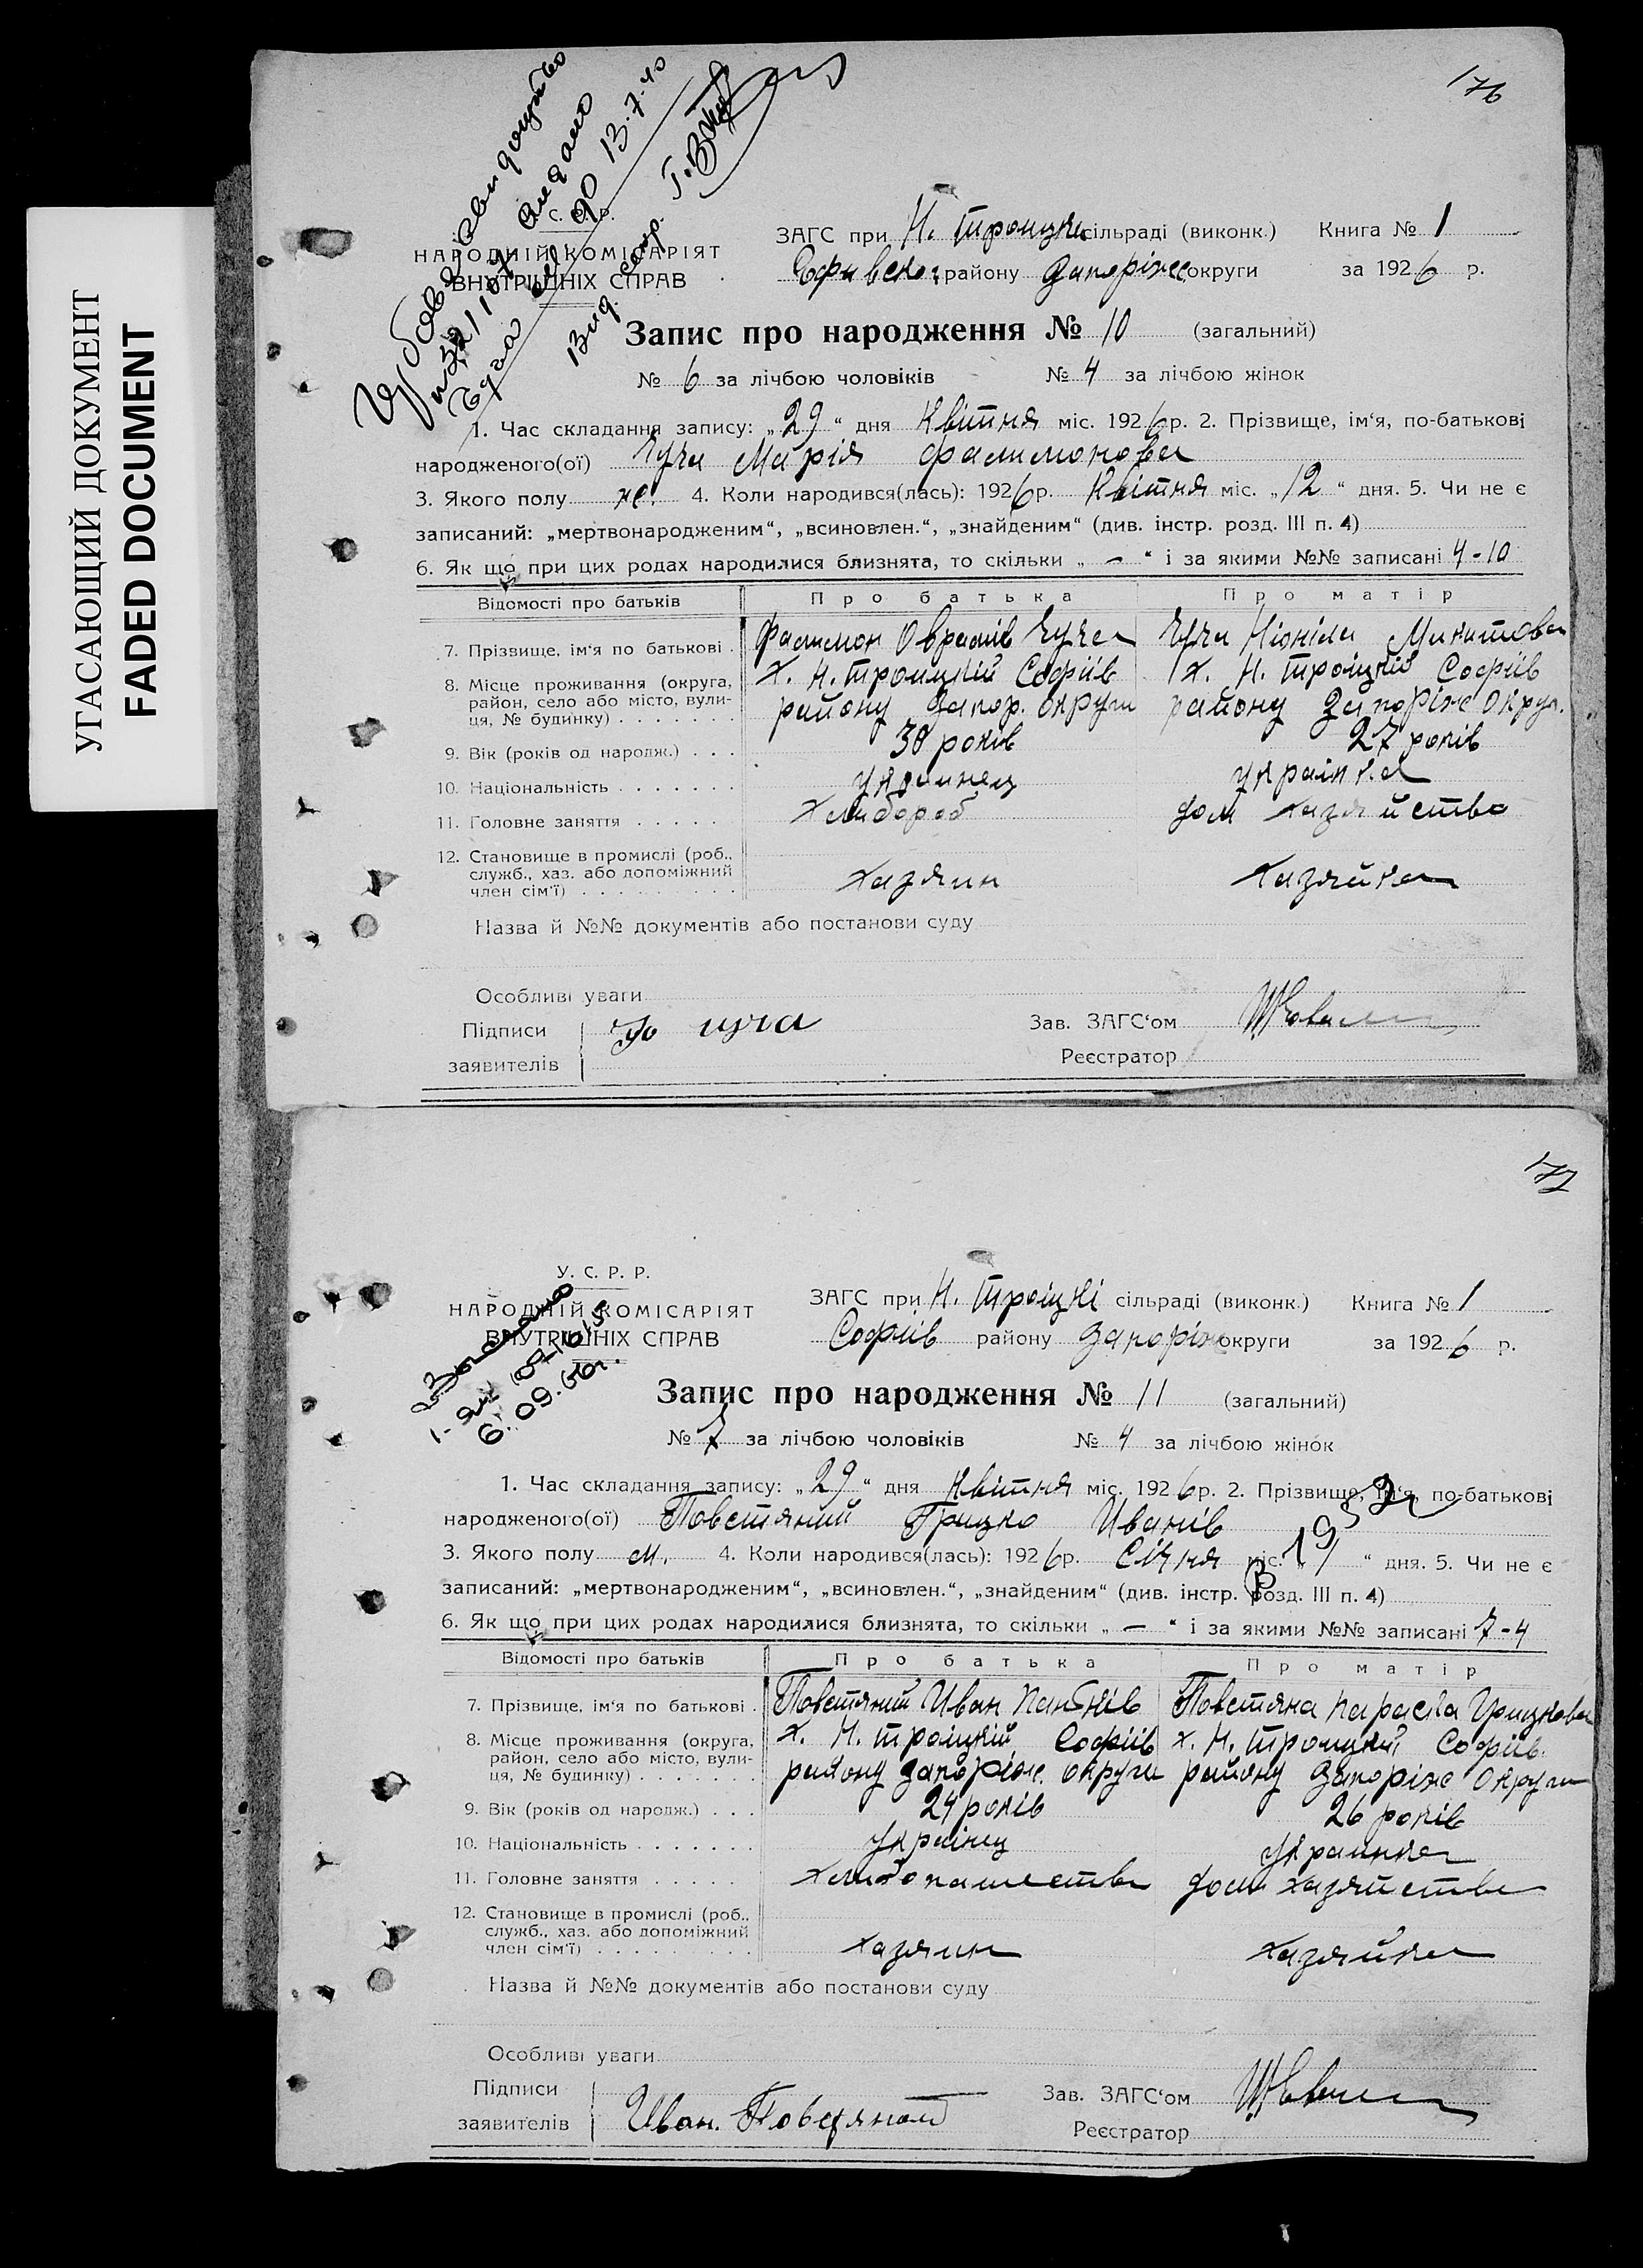 УГАСАЮЩИЙ ДОКУМЕНТ
FADED DOCUMENT
176
видано
13.7.40
С. Р.
НАРОДНІЙ КОМІСАРІЯТ
ВНУТРІШНІХ СПРАВ
ЗАГС при Н. Троицки сільраді (виконк.) Книга № 1
району Запоріж округи за 1926 р.
Запис про народження № 10 (загальний)
№ 6 за лічбою чоловіків № 4 за лічбою жінок
1. Час складання запису: „29“ дня Квітня міс. 1926 р. 2. Прізвище, ім'я, по-батькові
народженого(ої) Марія Фалимонова
3. Якого полу ж. 4. Коли народився(лась): 1926 р. Квітня міс. „12“ дня. 5. Чи не є
записаний: „мертвонародженим“, „всиновлен.“, „знайденим“ (див. інстр. розд. III п. 4)
6. Як що при цих родах народилися близнята, то скільки „ — “ і за якими №№ записані 4-10
Відомості про батьків Про батька Про матір
7. Прізвище, ім'я по батькові
8. Місце проживання (округа, х. Н. Троицкій Софіїв х. Н. Троіцкій Софіїв
район, село або місто, вули- району Запор. округи району Запоріж Округ.
ця, № будинку)
9. Вік (років од народж.) 27 років
10. Національність українец українка
11. Головне заняття хлибороб дом хазяйство
12. Становище в промислі (роб.,
служб., хаз. або допоміжний хазяин хазяйка
член сім'ї)
Назва й №№ документів або постанови суду
Особливі уваги
Підписи
заявителів
Зав. ЗАГС'ом
Реєстратор
177
У. С. Р. Р.
НАРОДНІЙ КОМІСАРІЯТ
ВНУТРІШНІХ СПРАВ
ЗАГС при Н. Троіцкі сільраді (виконк.) Книга № 1
Софіїв району Запоріж округи за 1926 р.
Запис про народження № 11 (загальний)
№ 7 за лічбою чоловіків № 4 за лічбою жінок
1. Час складання запису: „29“ дня Квітня міс. 1926 р. 2. Прізвище, ім'я, по-батькові
народженого(ої) Повстяний Грицко Иванів
3. Якого полу м. 4. Коли народився(лась): 1926 р. Січня міс. „1“ дня. 5. Чи не є
записаний: „мертвонародженим“, „всиновлен.“, „знайденим“ (див. інстр. розд. III п. 4)
6. Як що при цих родах народилися близнята, то скільки „ — “ і за якими №№ записані 7-4
Відомості про батьків Про батька Про матір
7. Прізвище, ім'я по батькові Повстяний Иван Повстяна Параска Грицкова
8. Місце проживання (округа, х. Н. Троіцкій Софіїв х. Н. Троицкій Софіїв.
район, село або місто, вули- району Запоріж. округи району Запоріж Округи
ця, № будинку)
9. Вік (років од народж.) 24 років 26 років
10. Національність Українец Украинка
11. Головне заняття дом хазяйства
12. Становище в промислі (роб.,
служб., хаз. або допоміжний хазяин хазяйка
член сім'ї)
Назва й №№ документів або постанови суду
Особливі уваги
Підписи
заявителів Иван.
Зав. ЗАГС'ом
Реєстратор